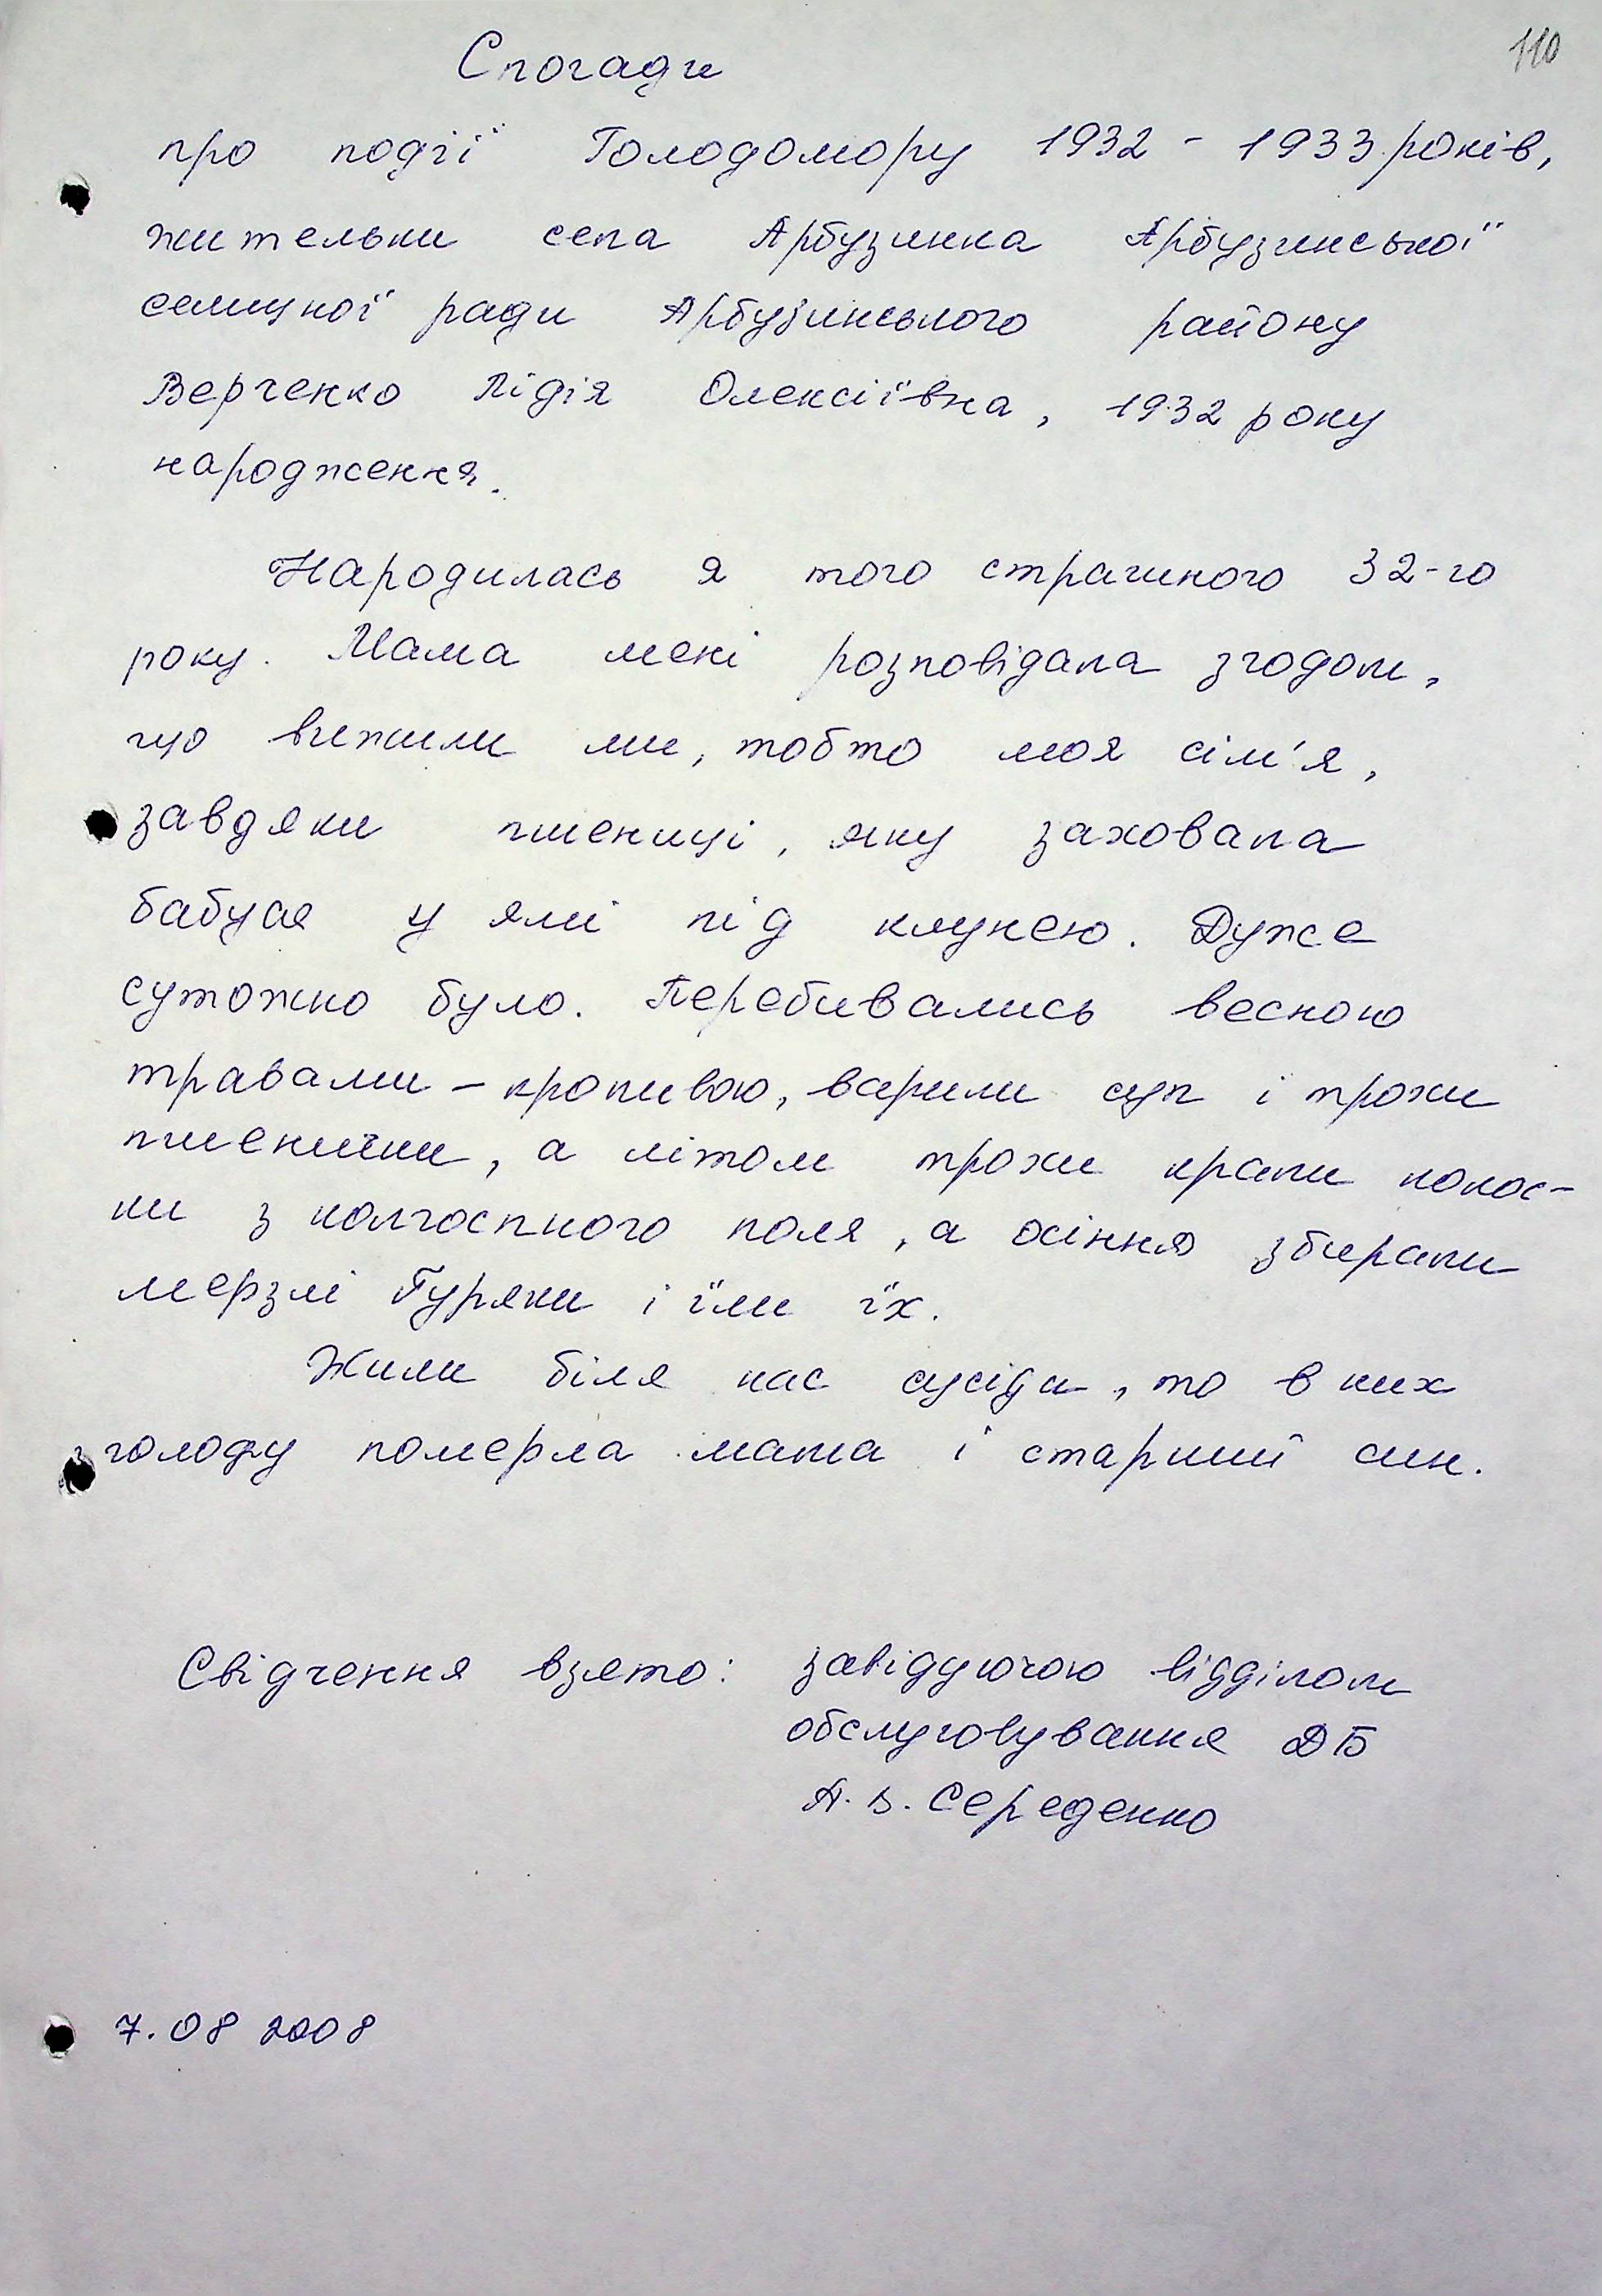 110
Спогади
про події Голодомору 1932 - 1933 років,
жительки села Арбузинка Арбузинської
селищної ради Арбузинського району
Верченко Лідія Олексіївна, 1932 року
народження.
Народилась я того страшного 32-го
року. Мама мені розповідала згодом,
що вижили ми, тобто моя сім'я,
завдяки пшениці, яку заховала
бабуся у ямі під клунею. Дуже
сутожно було. Перебивались весною
травами - кропивою, варили суп і трохи
пшенички, а літом трохи крали колос-
ки з колгоспного поля, а осінню збирали
мерзлі буряки і їли їх.
Жили біля нас сусіди, то в них
з голоду померла мама і старший син.
Свідчення взято: завідуючою відділом
обслуговування ДБ
А. В. Середенко
7. 08 2008